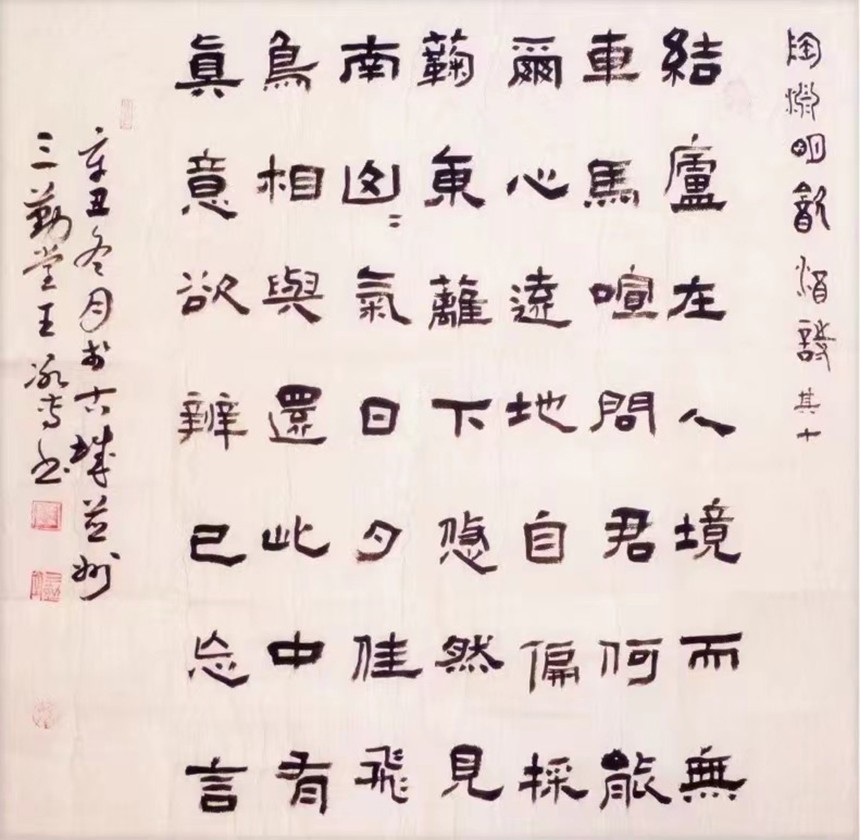 陶淵明㱃酒詩其十
結廬在人境而無
車馬喧問君何能
爾心遠地自偏採
蘜東蘺下悠然見
南山〻氣日夕佳飛
鳥相與還此中有
眞意欲辨已忘言
辛丑冬月於古城並州
三勤堂王书